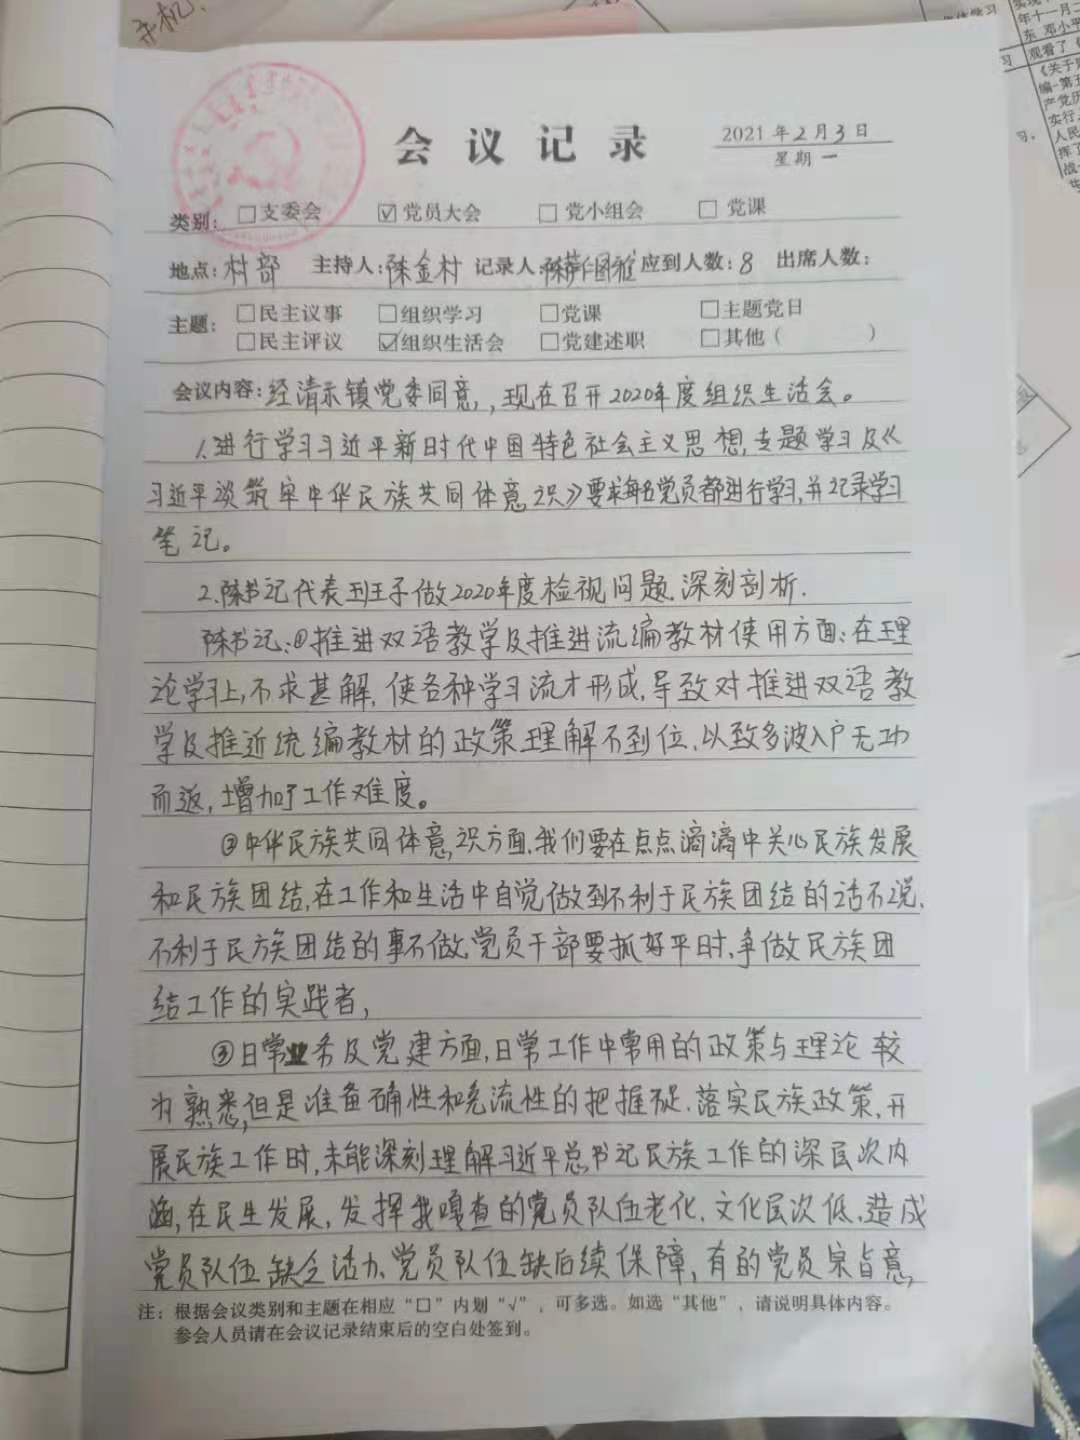 会议记录
2021年2月3日
星期一
类别：□支委会 ☑党员大会 □党小组会 □党课
地点：村部 主持人：陈金村 记录人： 应到人数：8 出席人数：
主题：□民主议事 □组织学习 □党课 □主题党日
□民主评议 ☑组织生活会 □党建述职 □其他（ ）
会议内容：经清示镇党委同意，现在召开2020年度组织生活会。
1.进行学习习近平新时代中国特色社会主义思想，专题学习及《
习近平谈筑牢中华民族共同体意识》要求每名党员都进行学习，并记录学习
笔记。
2.陈书记代表班子做2020年度检视问题.深刻剖析.
陈书记：①推进双语教学及推进流编教材使用方面：在理
论学习上，不求甚解，使各种学习流才形成，导致对推进双语教
学及推近统编教材的政策理解不到位，以致多波入户无功
而返，增加了工作难度。
②中华民族共同体意识方面，我们要在点点滴滴中关心民族发展
和民族团结，在工作和生活中自觉做到不利于民族团结的话不说，
不利于民族团结的事不做，党员干部要抓好平时，争做民族团
结工作的实践者，
③日常 务及党建方面，日常工作中常用的政策与理论较
为熟悉，但是准备确性和 流性的把握 ，落实民族政策，开
展民族工作时，未能深刻理解习近平总书记民族工作的深层次内
涵，在民生发展，发挥我嘎查的党员队伍老化，文化层次低，造成
党员队伍缺乏活力、党员队伍缺后续保障，有的党员宗旨意
注：根据会议类别和主题在相应“□”内划“√”，可多选。如选“其他”，请说明具体内容。
参会人员请在会议记录结束后的空白处签到。